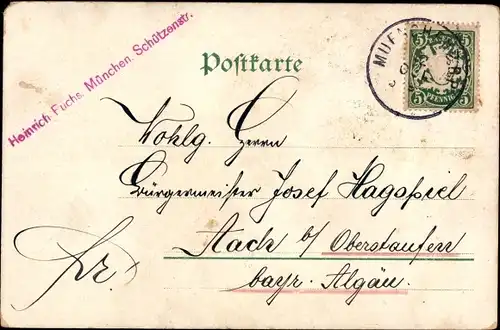 Heinrich Fuchs. München. Schützenstr.
Postkarte
5 5
PFENNIG
5 5
Wohlg. Herrn
Bürgermeister Josef Hagspiel
Aach b/ Oberstaufen
bayr. Algäu.